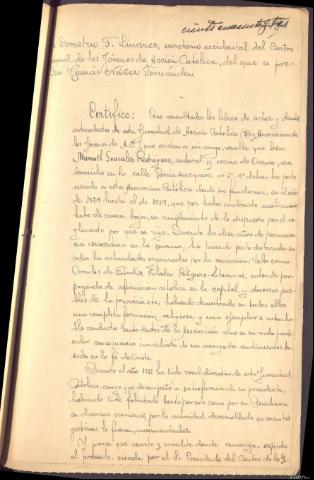 ciento cuarenta y tres
Demetrio F. Linares, secretario accidental del Centro
de los Jóvenes de Acción Católica, del que es pre-
Tomás Núñez Fernández
Certifico: Que consultados los libros de actas y demás
antecedentes de esta Juventud de Acción Católica (Hoy Asociación de
los Jóvenes de A.C.) que obran a mi cargo, resulta que Don
Manuel González Rodríguez, natural y vecino de Orense, con
domicilio en la calle nº 5-1º derecha ha perte-
necido a esta Asociación Católica desde su fundación, en el año
de 1929 hasta el de 1939, que por haber contraído matrimonio
hubo de causar baja, en cumplimiento de lo dispuesto por el re-
glamento por que se rige. Durante los diez años de permanen-
cia consecutiva en la misma, ha tomado parte destacada en
todas las actividades organizadas por la asociación tales como
Círculos de Estudios, Veladas Religioso-Literarias, actos de pro-
paganda de afirmación católica en la capital y diversos pue-
blos de la provincia etc, habiendo demostrado en todos ellos
una completa formación religiosa y una ejemplar e intacha-
ble conducta tanto dentro de la Asociación como en su vida parti-
cular consecuencia inmediata de sus arraigados sentimientos ba-
sados en la fé de Cristo.
Durante el año 1933 ha sido vocal-directivo de esta Juventud
Católica, cargo que desempeñó a satisfacción de su presidente,
habiendo sido felicitado tanto por este como por su Consiliario
en diversas ocasiones, por la actividad desarrollada en cuantas
gestiones le fueron encomendadas.
Y para que conste y acredite donde convenga, expido
el presente, visado por el Sr. Presidente del Centro de los J.